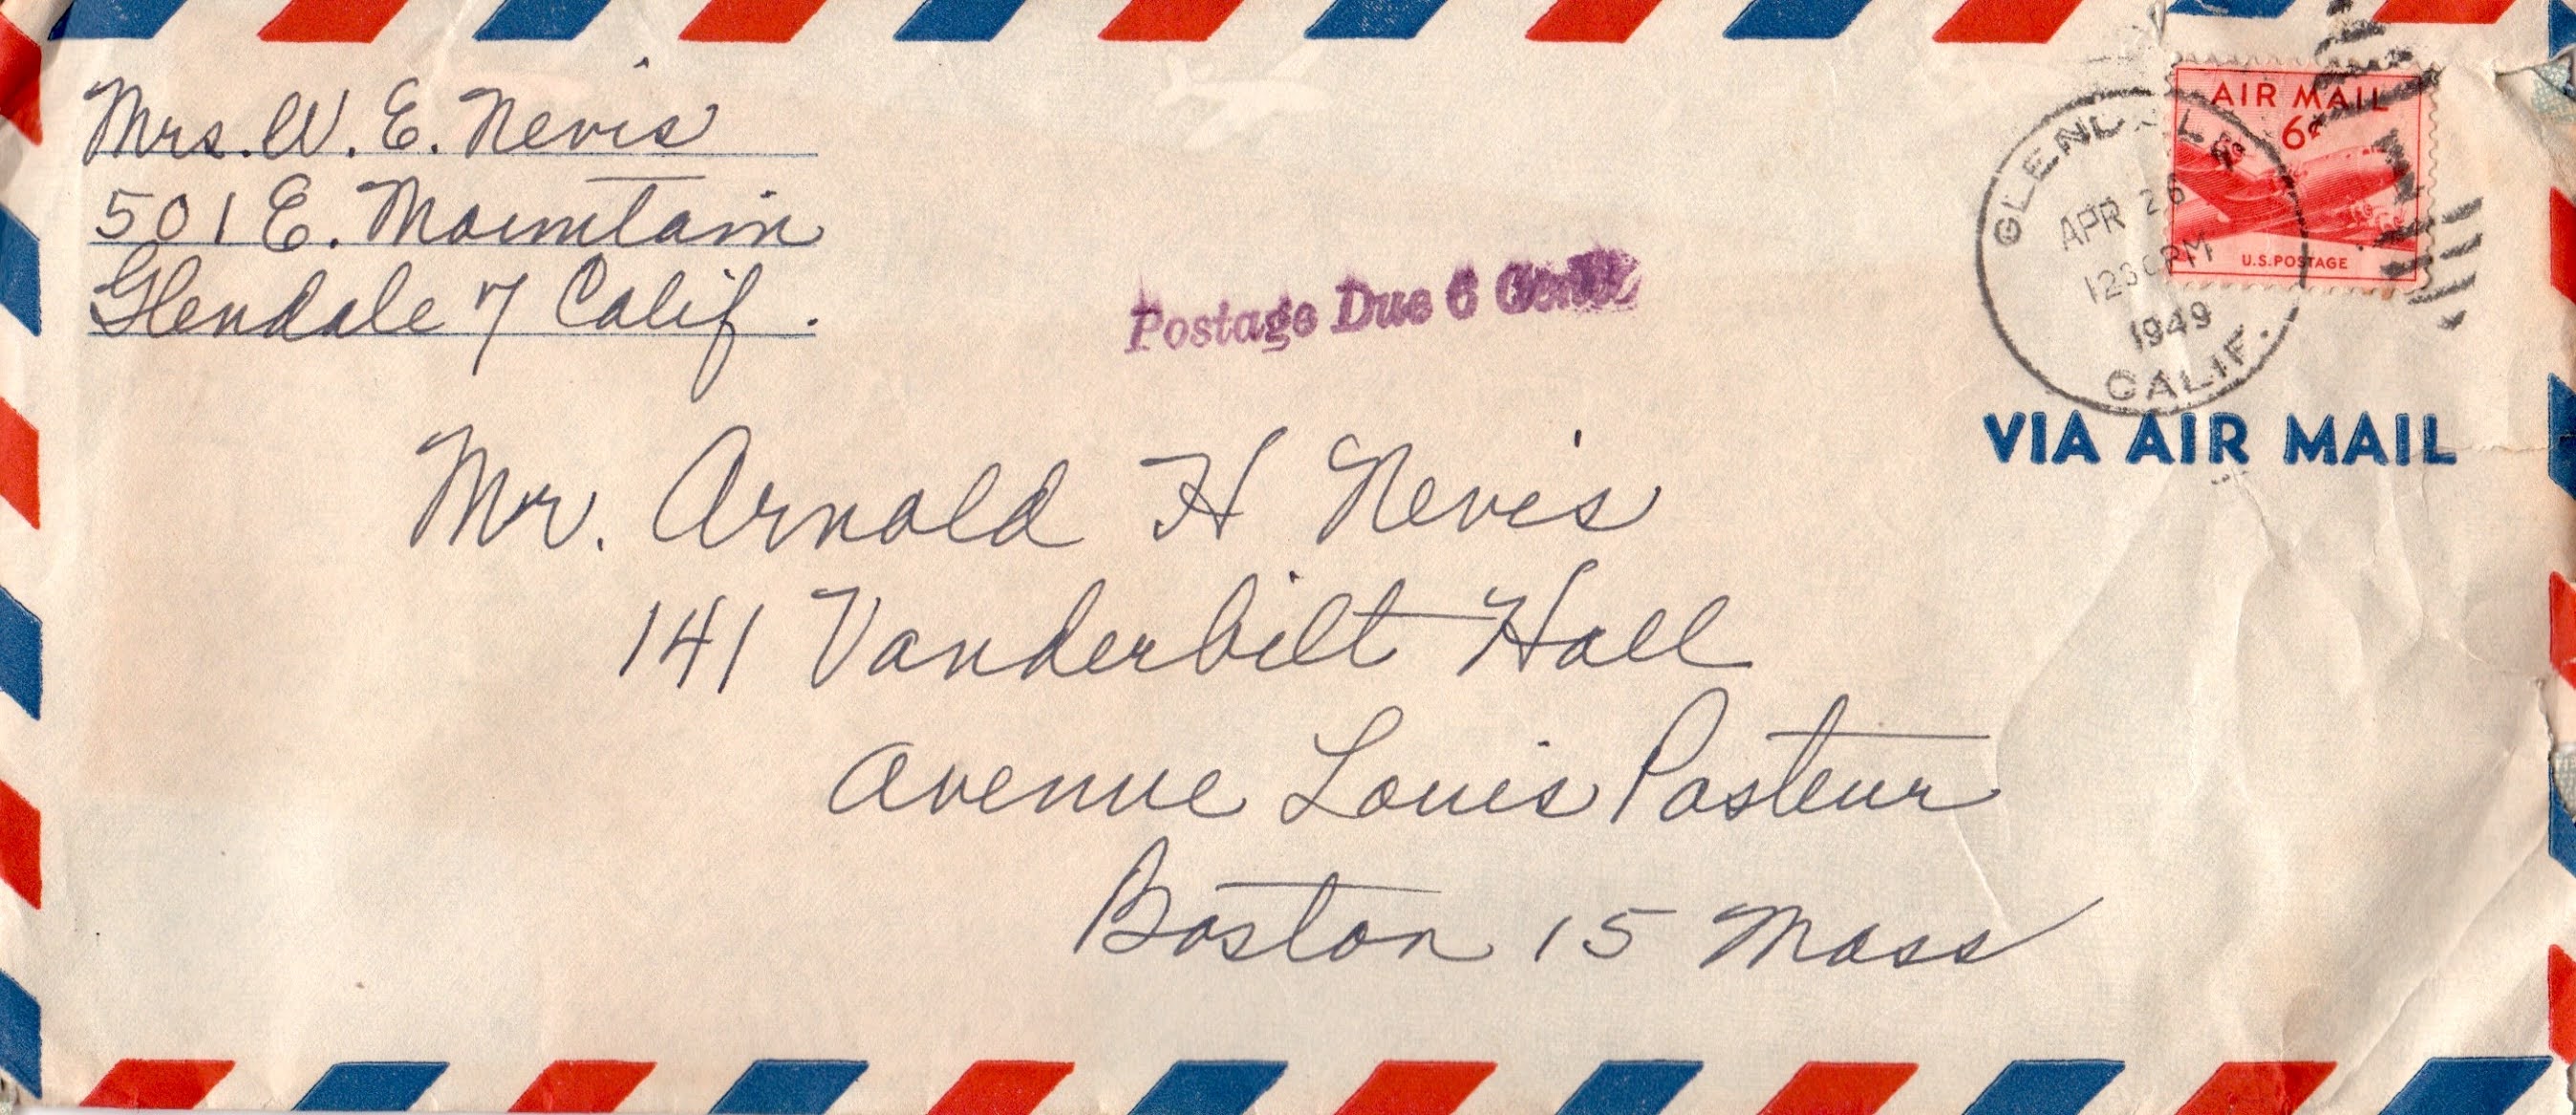 Mrs. W. E. Nevis
501 E. Mountain
Glendale 7 Calif.
Postage Due 6 Cents
AIR MAIL
6¢
U.S. POSTAGE
GLENDALE
APR 26
1230 PM
1949
CALIF.
VIA AIR MAIL
Mr. Arnold H Nevis
141 Vanderbilt Hall
Avenue Louis Pasteur
Boston 15 Mass